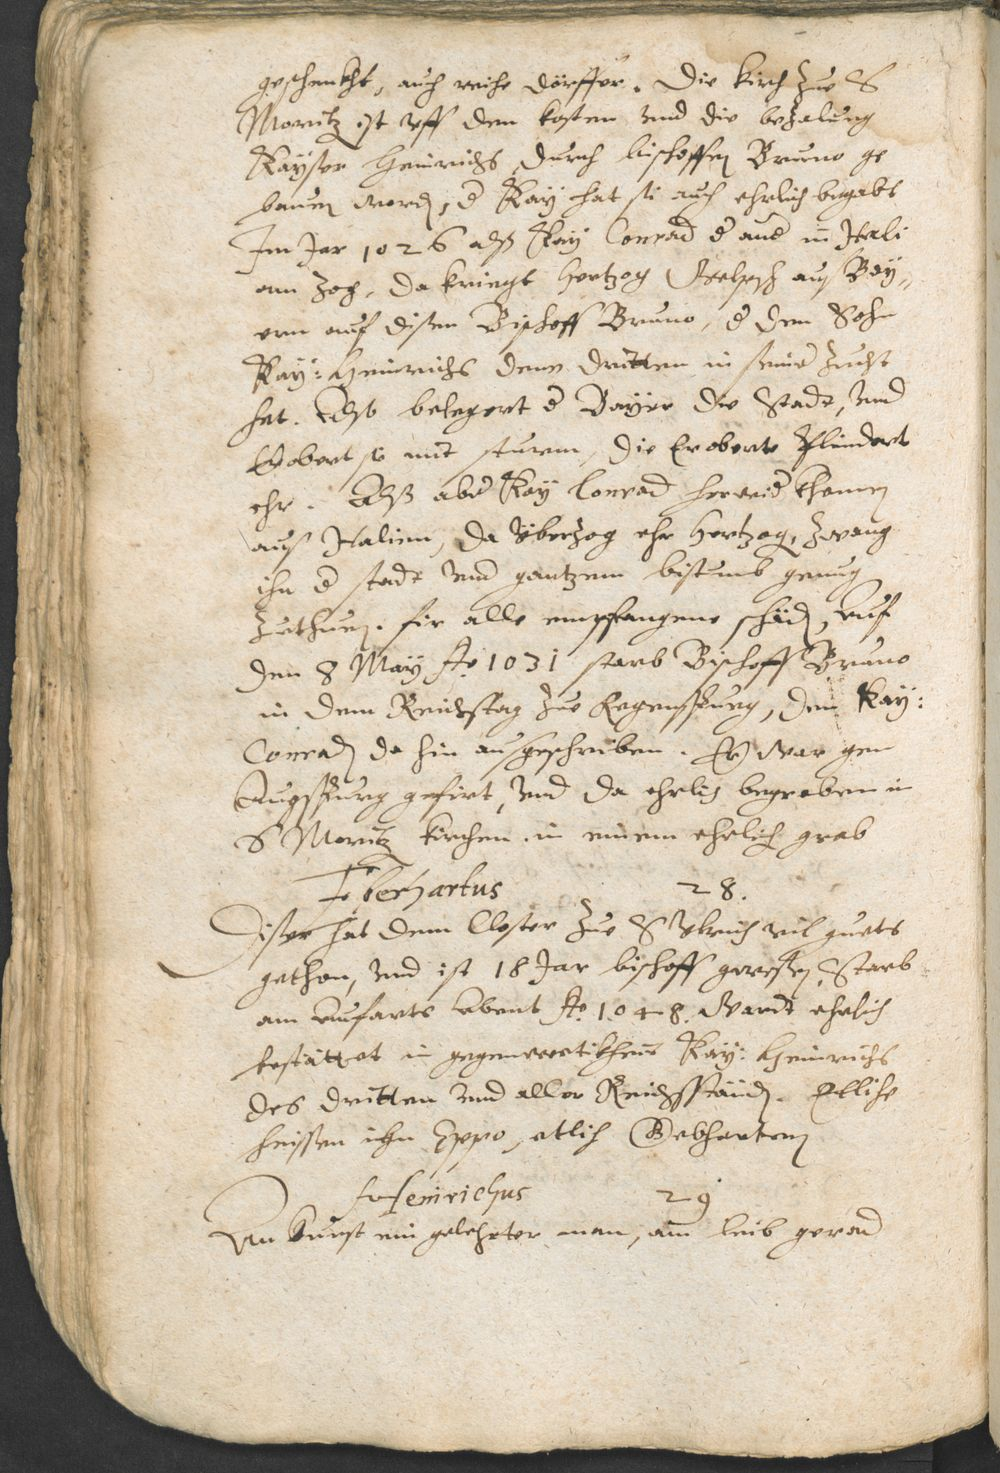 geschenckht, auch reihe dörffer. Die kirch zue S
Moritz ist vff den kosten vnd die bezalung
Kayser Heinrichs durch bischoffen Bruno ge
bauen word, d Kay hat si auch ehrlich begabt
Im Jar 1026 alß Kay Conrad d and in Itali
am zog, da kriegt Hertzog Welpsch auß Bay„
ern auf disen Bischoff Bruno, d den Sohn
Kay: Heinrichs denn dritten in seine zucht
hat. Also belegert d Bayer die Stadt, vnd
Erobert sie mit sturem, die Eroberte Plindert
ehr. Alß abr Kay Conrad herwid khamen
auß Italien, da vberzog ehr Hertzog, zwang
ihn d stadt vnd gantzem bistumb genug
zuthuen. fir alle empfangene schäd, auf
den 8 May Ao 1031 starb Bischoff Bruno
in dem Reichstag zue Regenspurg, den Kay:
Conrad da hin ausgeschriben. Er war gen
Augspurg gefirt, vnd da ehrlich begraben in
S Moritz kirchen in einem ehrlich grab
Eberhartus 28.
Diser hat dem Closter zue S Vlrich vil guets
gethon, vnd ist 18 Jar bischoff gewesen, Starb
am aufarts abent Ao 1048. Wardt ehrlich
bestattet in gegenwertikheit Kay: Heinrichs
des dritten vnd aller Reichsständ. Etliche
heissen ihn Eppo, etlich Gebharten
Heinrichus 29
Von kunst ein gelehrter man, am leib gerad